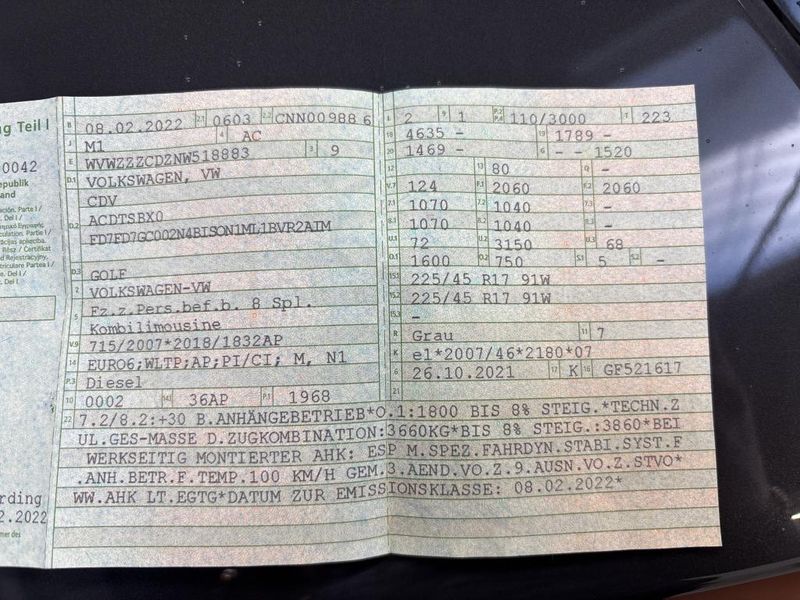 ng Teil I
0042
epublik
and
B 08.02.2022 2.1 0603 2.2 CNN00988 6
J M1 4 AC
E WVWZZZCDZNW518883 3 9
D.1 VOLKSWAGEN, VW
CDV
D.2 ACDTSBX0
FD7FD7GC002N4BISON1ML1BVR2AIM
D.3 GOLF
2 VOLKSWAGEN-VW
5 Fz.z.Pers.bef.b. 8 Spl.
Kombilimousine
V.9 715/2007*2018/1832AP
14 EURO6;WLTP;AP;PI/CI; M, N1
P.3 Diesel
10 0002 14.1 36AP P.1 1968
L 2 9 1 P.2 P.4 110/3000 T 223
18 4635 - 19 1789 -
20 1469 - G - - 1520
12 13 80 Q -
V.7 124 F.1 2060 F.2 2060
7.1 1070 7.2 1040 7.3 -
8.1 1070 8.2 1040 8.3 -
U.1 72 U.2 3150 U.3 68
O.1 1600 O.2 750 S.1 5 S.2 -
15.1 225/45 R17 91W
15.2 225/45 R17 91W
15.3 -
R Grau 11 7
K e1*2007/46*2180*07
6 26.10.2021 17 K 16 GF521617
21
22 7.2/8.2:+30 B.ANHÄNGEBETRIEB*O.1:1800 BIS 8% STEIG.*TECHN.Z
UL.GES-MASSE D.ZUGKOMBINATION:3660KG*BIS 8% STEIG.:3860*BEI
WERKSEITIG MONTIERTER AHK: ESP M.SPEZ.FAHRDYN.STABI.SYST.F
.ANH.BETR.F.TEMP.100 KM/H GEM.3.AEND.VO.Z.9.AUSN.VO.Z.STVO*
WW.AHK LT.EGTG*DATUM ZUR EMISSIONSKLASSE: 08.02.2022*
rding
2.2022